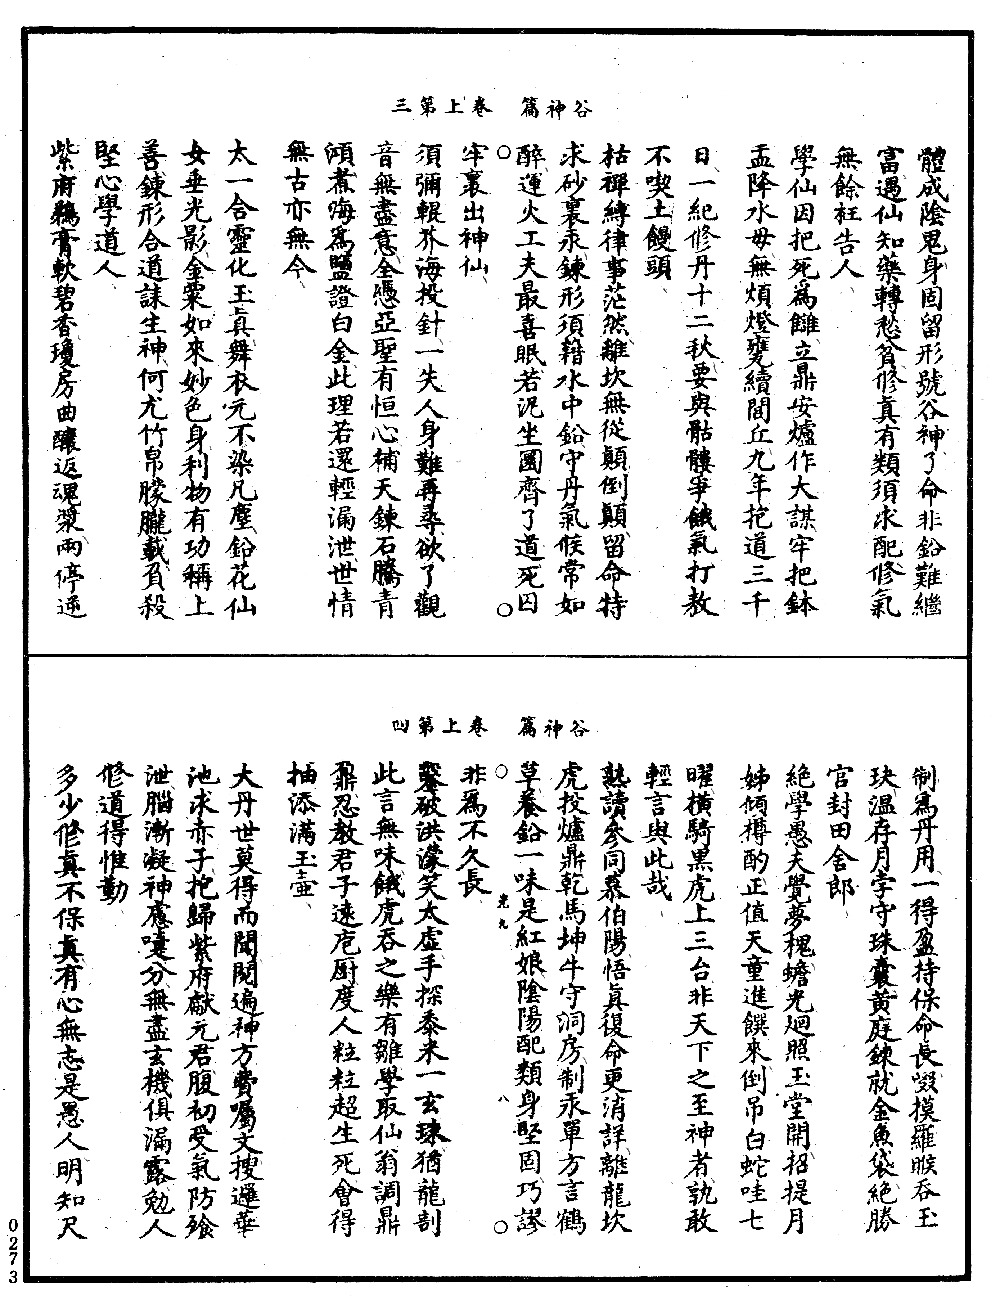 谷神篇　卷上第三
體成陰鬼身固留形號谷神了命非鉛難繼
富遇仙知藥轉愁貧修真有類須求配修氣
無餘枉告人
學仙因把死為讎立鼎安爐作大謀牢把鉢
盂降水毋無煩燈甕續間丘九年抱道三千
日一紀修丹十二秋要與骷髏爭餓氣打教
不喫土饅頭
枯禪縛律事茫然離坎無從顛倒顛留命特
求砂裏汞鍊形須藉水中鉛守丹氣候常如
醉運火工夫最喜眠若泥坐圜齊了道死囚
牢裏出神仙
須彌輥芥海投針一失人身難再尋欲了觀
音無盡意全憑亞聖有恒心補天鍊石騰青
澒煮海為鹽證白金此理若還輕漏泄世情
無古亦無今
太一合靈化玉真舞衣元不染凡塵鉛花仙
女垂光影金粟如來妙色身利物有功稱上
善鍊形合道誄生神何尤竹帛朦朧載負殺
堅心學道人
紫府鵝膏軟碧香瓊房曲釀返魂漿兩停逆
谷神篇　卷上第四
制為丹用一得盈持保命長啜摸羅睺吞玉
玦溫存月孛守珠囊黃庭鍊就金魚袋絕勝
官封田舍郎
絕學愚夫覺夢槐蟾光廻照玉堂開招提月
姊傾樽酌正值天童進饌來倒吊白蛇哇七
曜橫騎黑虎上三台非天下之至神者孰敢
輕言與此哉
熟讀參同慕伯陽悟真復命更消詳離龍坎
虎投爐鼎乾馬坤牛守洞房制汞單方言鶴
草養鉛一味是紅娘陰陽配類身堅固巧謬
非為不久長
鑿破洪濛笑太虛手探黍米一玄珠猶龍剖
此言無味餓虎吞之樂有雛學取仙翁調鼎
鼐忍教君子遠庖厨度人粒粒超生死會得
抽添滿玉壺
大丹世莫得而聞閱遍神方費囑文搜邏華
池求赤子抱歸紫府獻元君腹初受氣防殮
泄腦漸凝神慮嚏分無盡玄機俱漏露勉人
修道得惟勤
多少修真不保真有心無志是愚人明知尺
八
0273